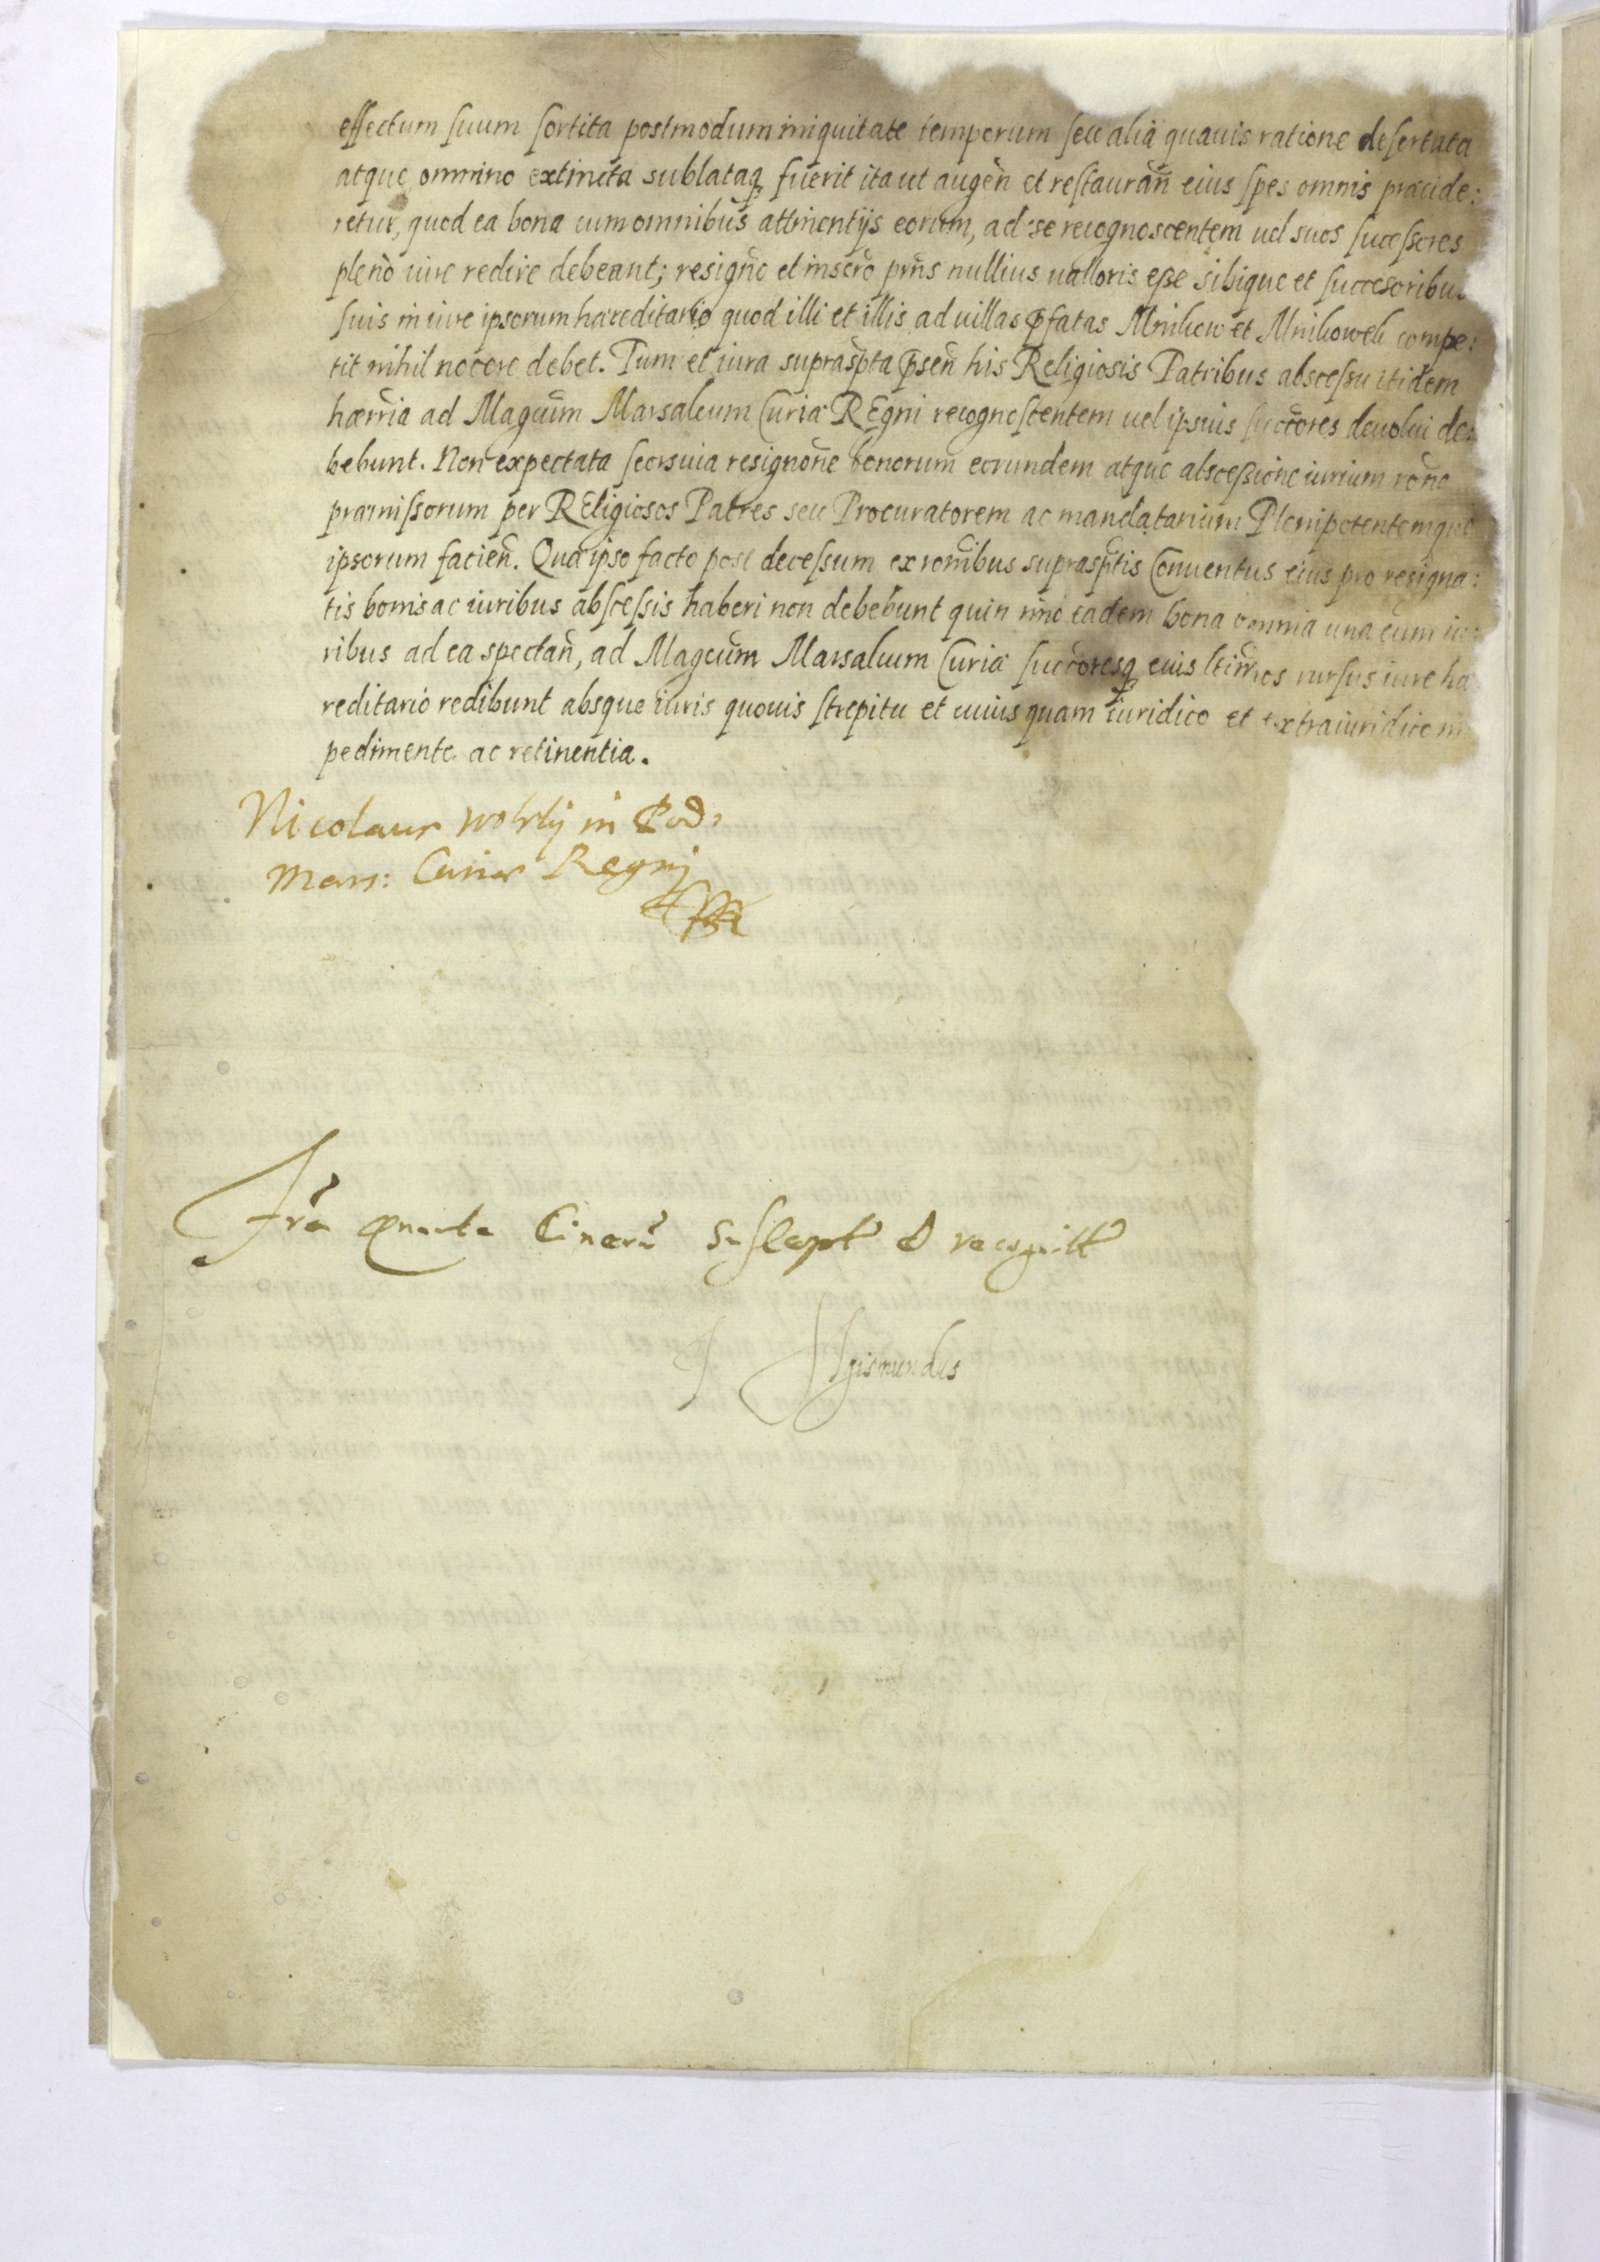 effectum suum sortita postmodum iniquitate temporum seu alia quauis ratione desertata
atque omnino extincta sublataq fuerit ita ut augen̄ et restauran̄ eius spes omnis præcide:
retur, quod ea bona cum omnibus attinentijs eorum, ad se recognoscentem uel suos successores
pleno iure redire debeant; resigne et insero prns nullius ualloris esse sibique et succesoribus
suis in iure ipsorum hæreditario quod illi et illis ad uillas pfatas Mnikow et Mnikowek compe:
tit nihil nocere debet. Tum et iura suprascpta psen his Religiosis Patribus abscessu itidem
hærria ad Magcum Marsalcum Curiæ REgni recognoscentem uel ipsius succores deuolui de:
bebunt. Non expectata seorsiuia resignone bonorum eorundem atque abscessione iurium rone
præmissorum per REligiosos Patres seu Procuratorem ac mandatarium Plenipotentemque
ipsorum facien̄. Quæ ipso facto post decessum ex ronibus suprascptis Conuentus eius pro resigna:
tis bonis ac iuribus abscessis haberi non debebunt quin imo eadem bona omnia una cum iu:
ribus ad ea spectan̄, ad Magcum Marsalcum Curiæ succoresq eius ltimos rursus iure hæ
reditario redibunt absque iuris quouis strepitu et cuius quam iuridico et extraiuridico im
pedimento ac retinentia.
Nicolaus wolsky in Pod:
Mars: Curiæ Regnj
Fra quarta Cinerū Suscept et recognitt
Sigismundus